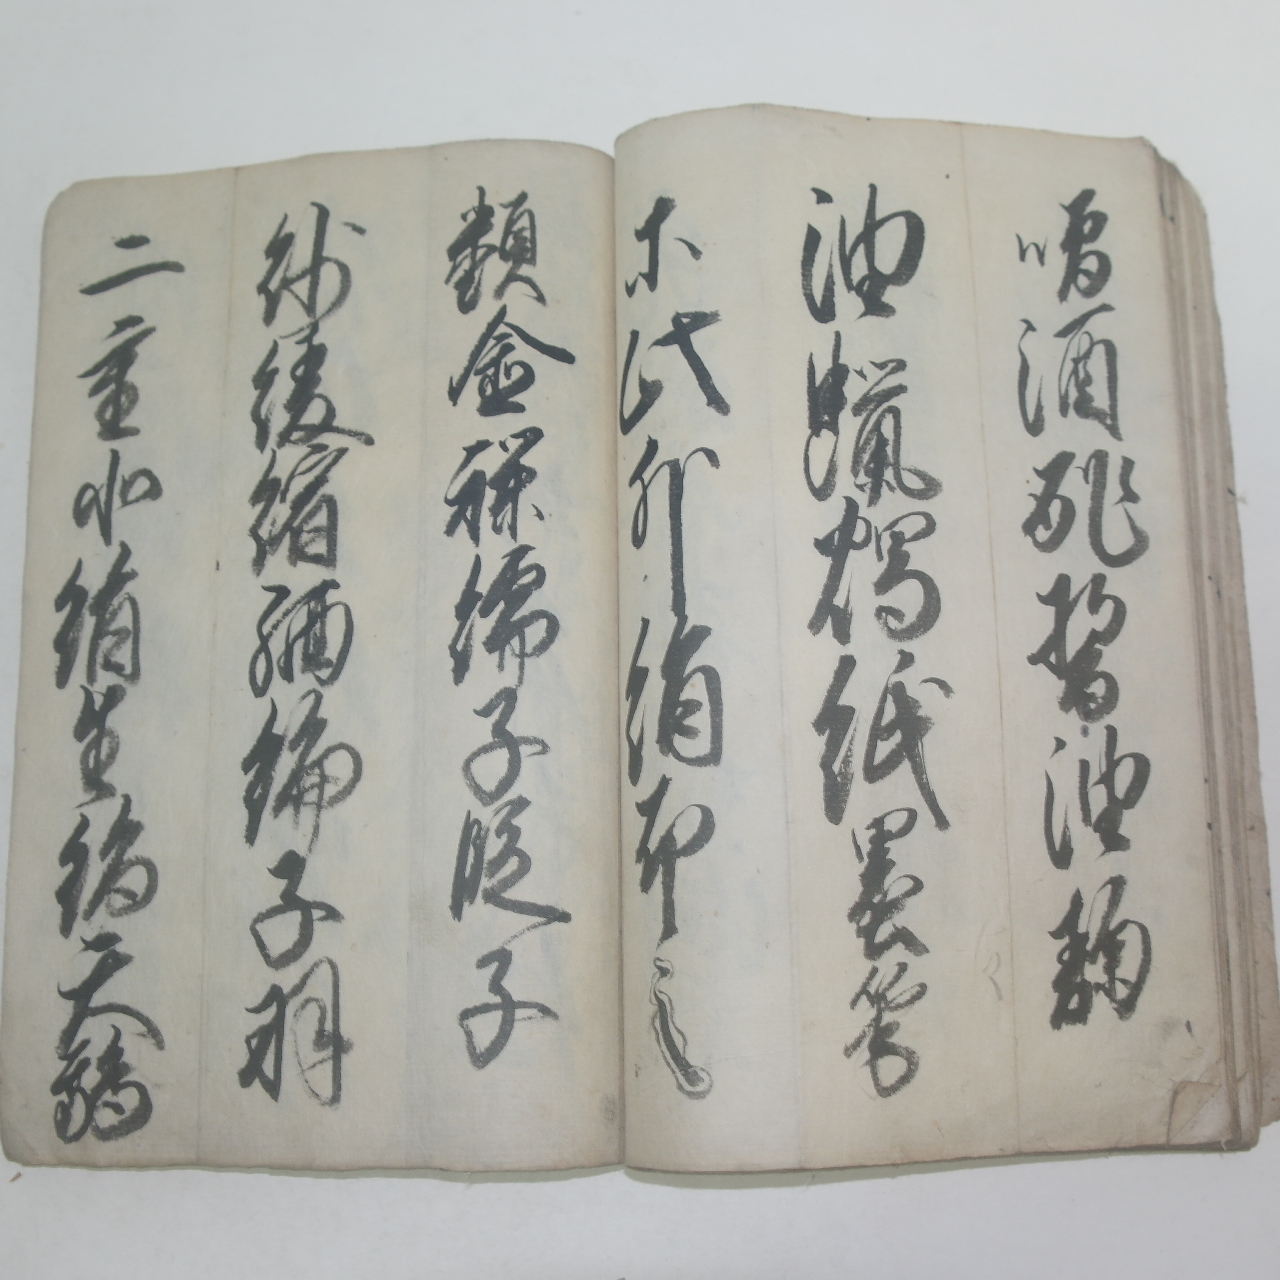 噌酒酢醤油麹
油蝋燭紙墨筆
等此外絹布之
類金襴繻子緞子
紗綾縮緬綸子羽
二重北絹生天鵞